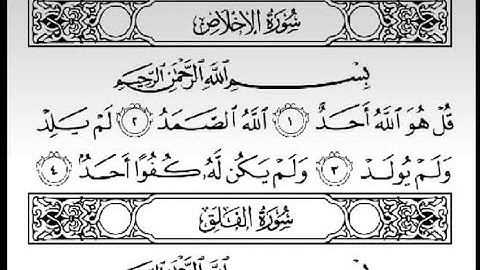 سُورَةُ الإِخْلَاصِ
بِسْمِ ٱللَّهِ ٱلرَّحْمَٰنِ ٱلرَّحِيمِ
قُلْ هُوَ ٱللَّهُ أَحَدٌ ١ ٱللَّهُ ٱلصَّمَدُ ٢ لَمْ يَلِدْ
وَلَمْ يُولَدْ ٣ وَلَمْ يَكُن لَّهُۥ كُفُوًا أَحَدٌۢ ٤
سُورَةُ الفَلَقِ
بِسْمِ ٱللَّهِ ٱلرَّحْمَٰنِ